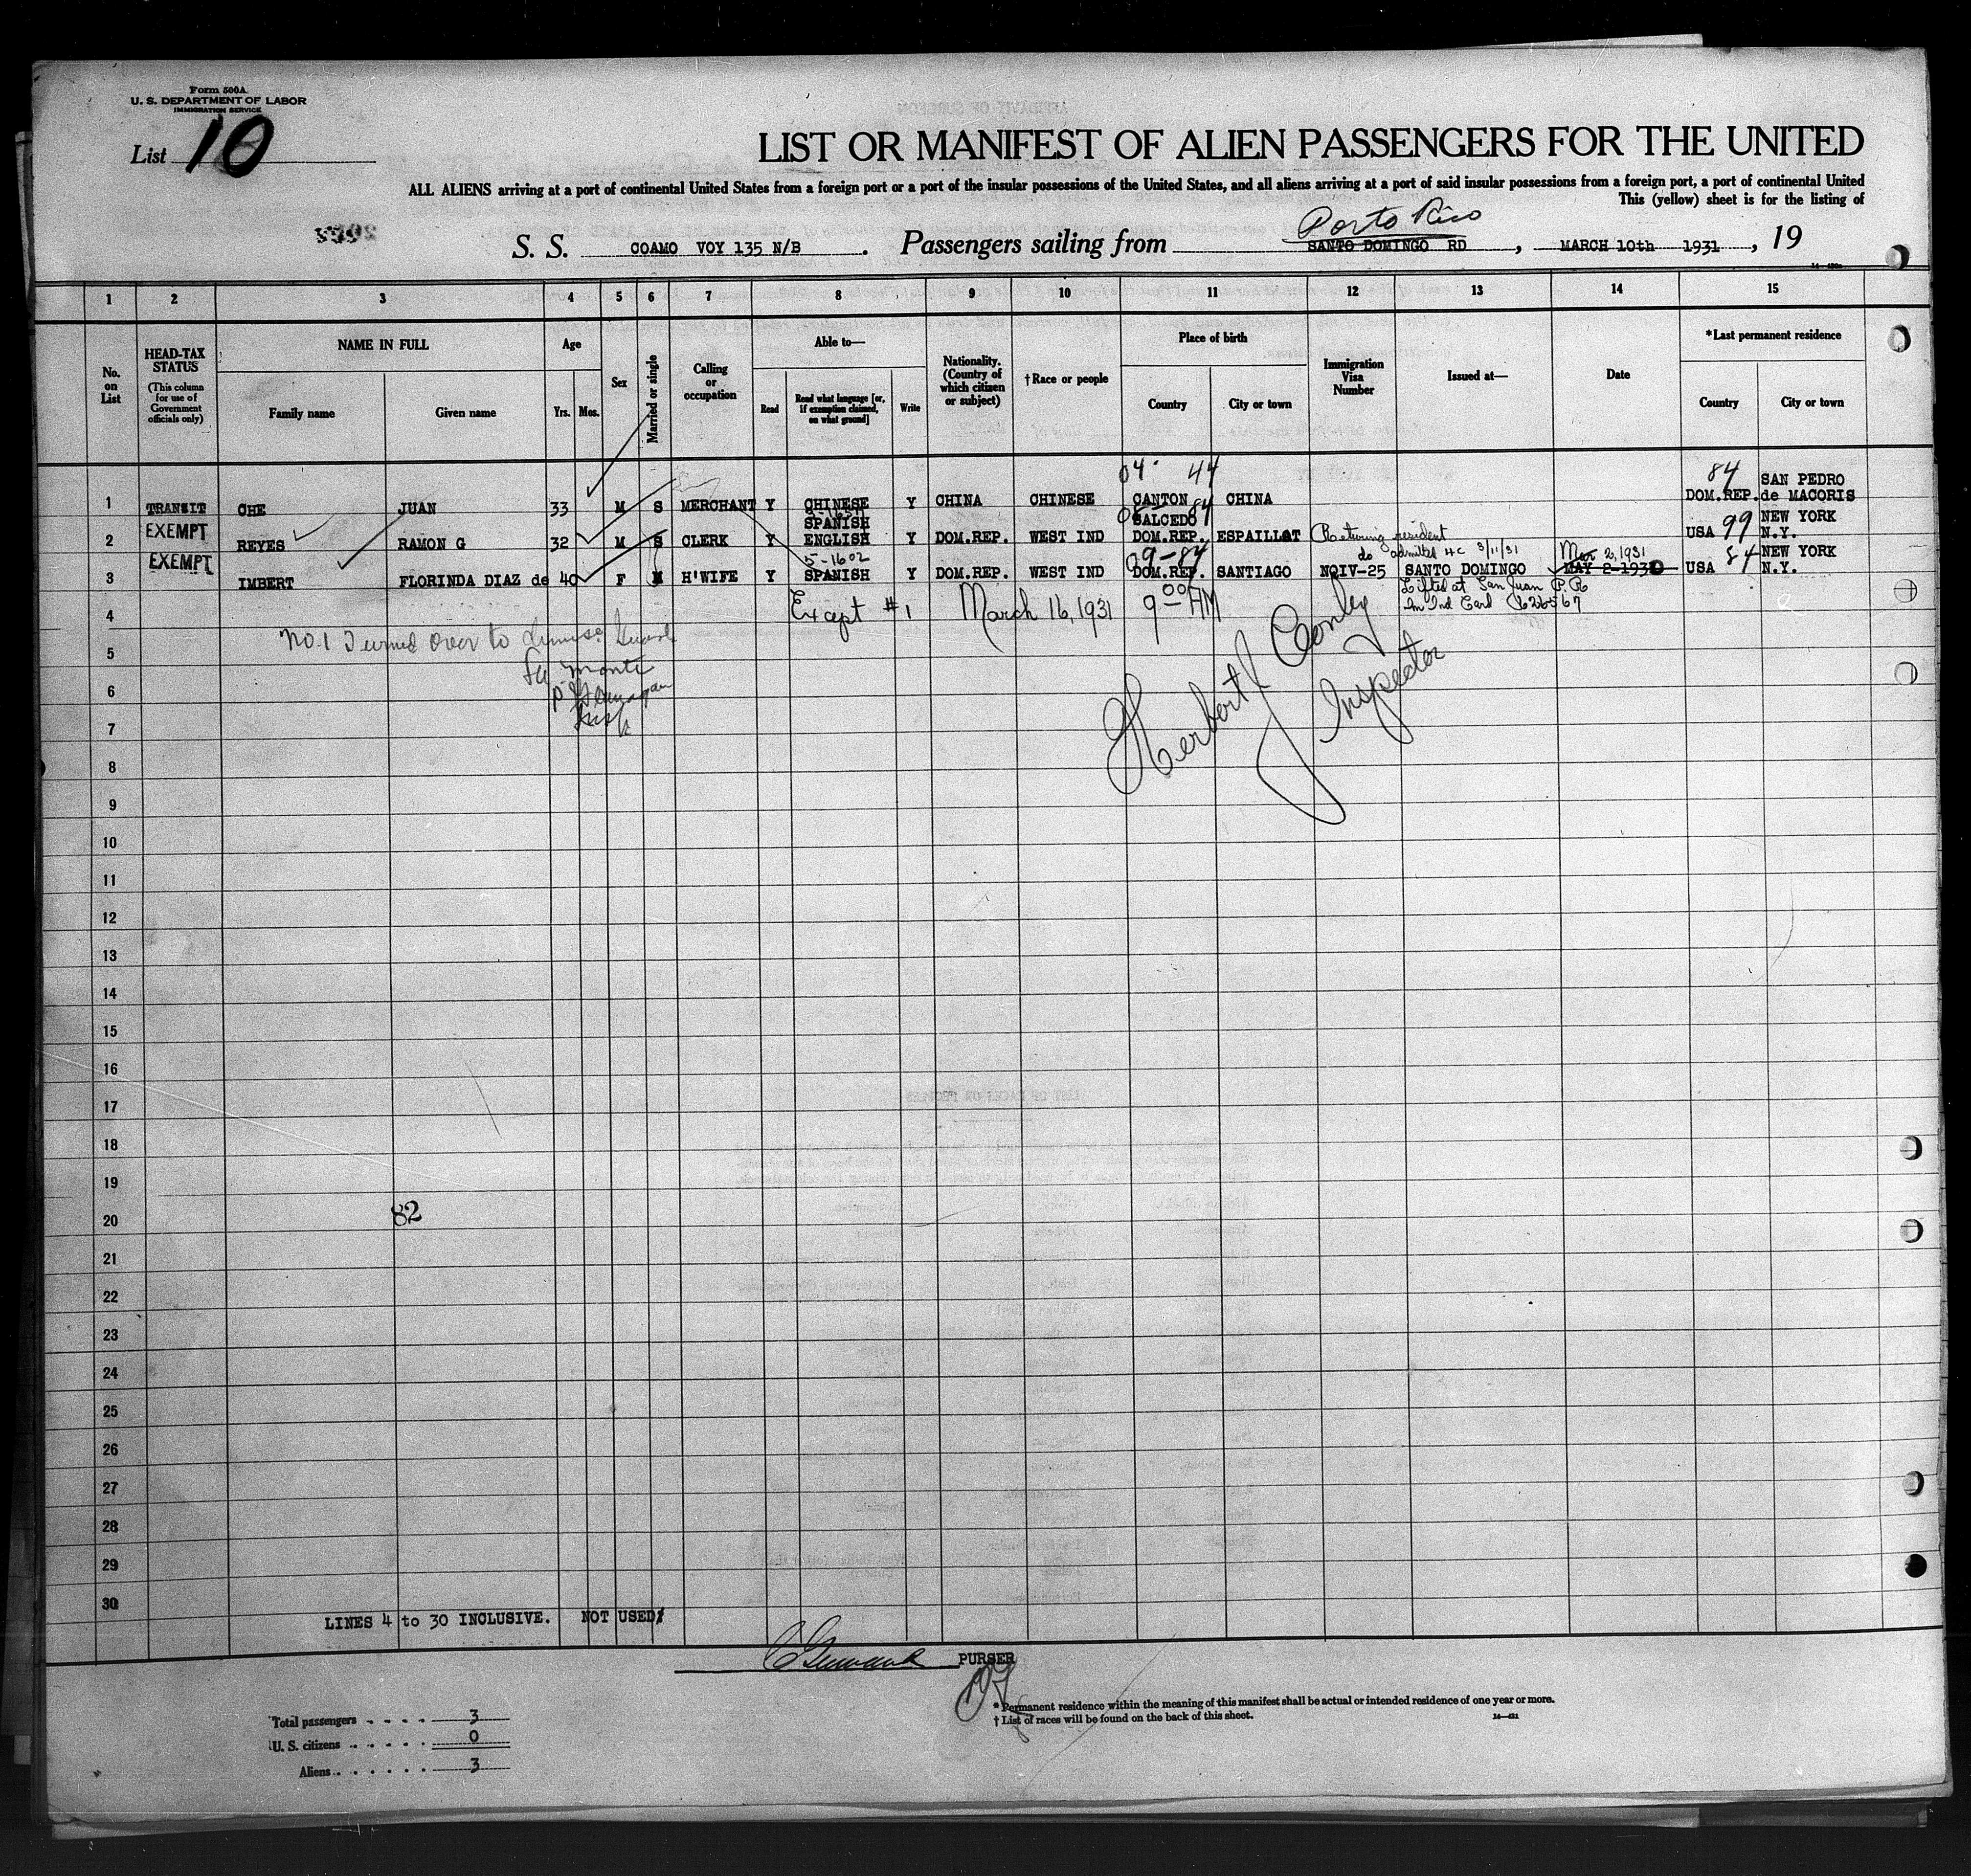 Form 500A
U. S. DEPARTMENT OF LABOR
IMMIGRATION SERVICE
List 10
LIST OR MANIFEST OF ALIEN PASSENGERS FOR THE UNITED
ALL ALIENS arriving at a port of continental United States from a foreign port or a port of the insular possessions of the United States, and all aliens arriving at a port of said insular possessions from a foreign port, a port of continental United
This (yellow) sheet is for the listing of
Porto Rico
S. S. COAMO VOY 135 N/B . Passengers sailing from SANTO DOMINGO RD , MARCH 10th 1931 , 19
1 2 3 4 5 6 7 8 9 10 11 12 13 14 15
No. on List
HEAD-TAX STATUS
(This column for use of Government officials only)
NAME IN FULL
Family name
Given name
Age
Yrs. Mos.
Sex
Married or single
Calling or occupation
Able to—
Read
Read what language [or, if exemption claimed, on what ground]
Write
Nationality. (Country of which citizen or subject)
†Race or people
Place of birth
Country
City or town
Immigration Visa Number
Issued at—
Date
*Last permanent residence
Country
City or town
04 44 84 SAN PEDRO
1 TRANSIT CHE JUAN 33 M S MERCHANT Y CHINESE Y CHINA CHINESE CANTON CHINA DOM.REP. de MACORIS
EXEMPT SPANISH SALCEDO 84 NEW YORK
2 REYES RAMON G 32 M S CLERK Y ENGLISH Y DOM.REP. WEST IND DOM.REP. ESPAILLAT Returning resident USA 99 N.Y.
EXEMPT 5-1602 09-84 do admitted HC 3/11/31 Mar 2, 1931 84 NEW YORK
3 IMBERT FLORINDA DIAZ de 40 F M H'WIFE Y SPANISH Y DOM.REP. WEST IND DOM.REP. SANTIAGO NQIV-25 SANTO DOMINGO MAY 2-1930 USA N.Y.
Lifted at San Juan P.R
4 Except #1 March 16, 1931 9 00 AM Im Ind Card 626567
No. 1 Turned over to
5
6
7
Herbert J Conly
Inspector
8
9
10
11
12
13
14
15
16
17
18
19
20 82
21
22
23
24
25
26
27
28
29
30
LINES 4 to 30 INCLUSIVE. NOT USED
PURSER
* Permanent residence within the meaning of this manifest shall be actual or intended residence of one year or more.
† List of races will be found on the back of this sheet.
Total passengers 3
U. S. citizens 0
Aliens 3